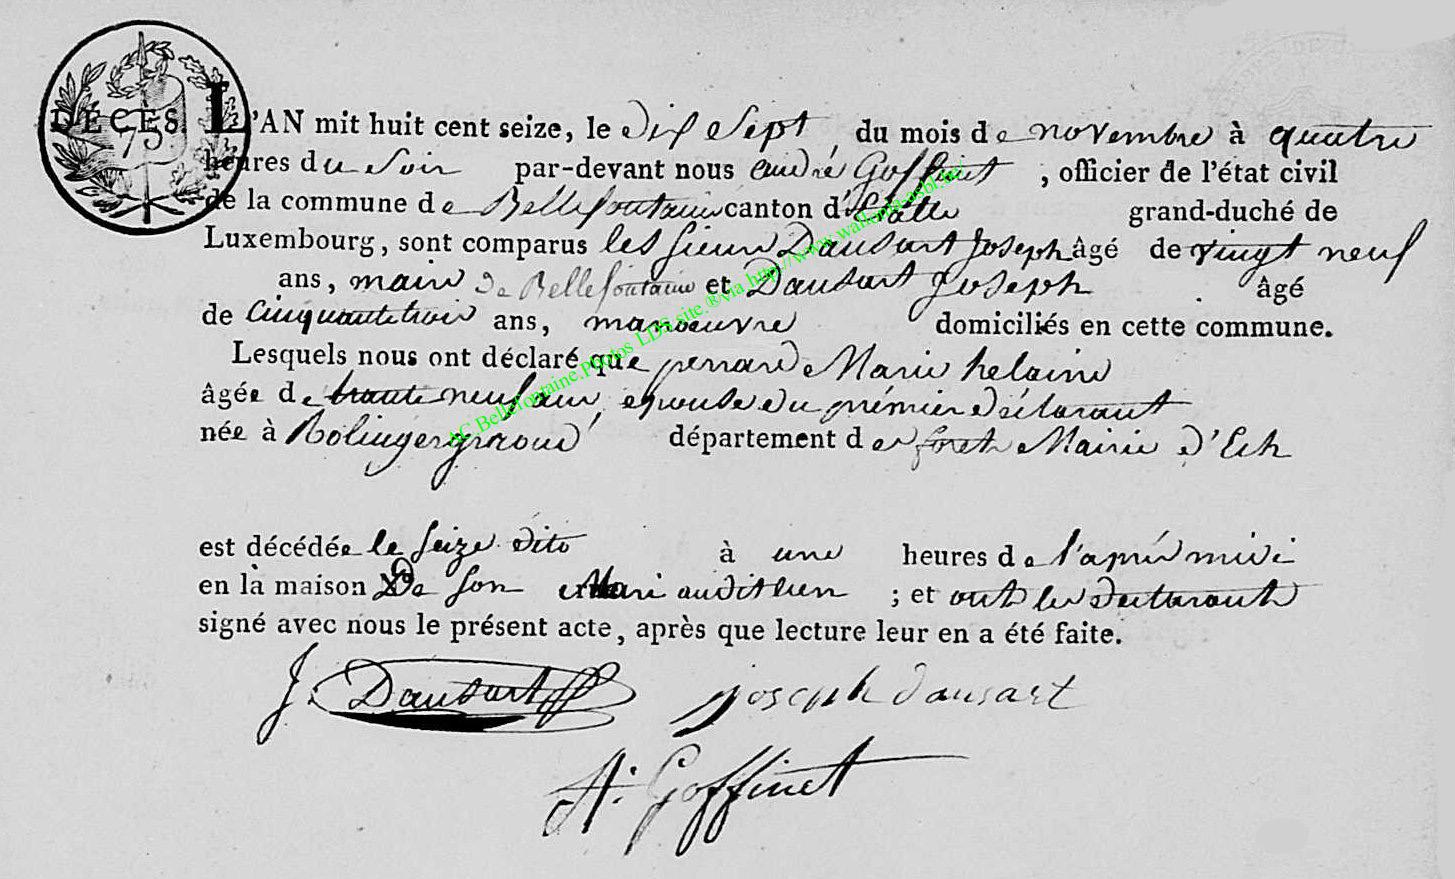 DÉCÈS
75.
L'AN mit huit cent seize, le dix Sept du mois de novembre à quatre
heures du Soir par-devant nous andré Goffinet, officier de l'état civil
de la commune de Bellefontaine canton d'Etalle grand-duché de
Luxembourg, sont comparus les sieurs Dausart Joseph âgé de vingt neuf
ans, maire de Bellefontaine et Dausart Joseph âgé
de Cinquante trois ans, manoeuvre domiciliés en cette commune.
Lesquels nous ont déclaré que perrard Marie helaine
âgée de trente neuf ans, epouse du prémier déclarant
née à Rolingergraond département des forets Mairie d'Ech
est décédée le Seize dito à une heures de l'après midi
en la maison De son Mari audit lieu ; et ont les declarants
signé avec nous le présent acte, après que lecture leur en a été faite.
J. Dausart joseph dausart
A. Goffinet
AC Bellefontaine.Photos LDS site.® via http://www.wallonia-asbl.be/